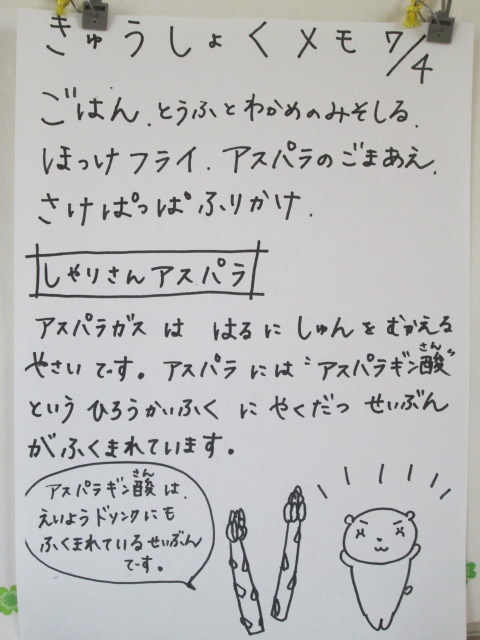 きゅうしょくメモ 7/4
ごはん.とうふとわかめのみそしる.
ほっけフライ.アスパラのごまあえ.
さけぱっぱふりかけ.
しゃりさんアスパラ
アスパラガス は はるに しゅんを むかえる
やさいです。アスパラ には “アスパラギン酸”
さん
という ひろうかいふく に やくだつ せいぶん
がふくまれています。
さん
アスパラギン酸 は、
えいようドリンクにも
ふくまれているせいぶん
です。